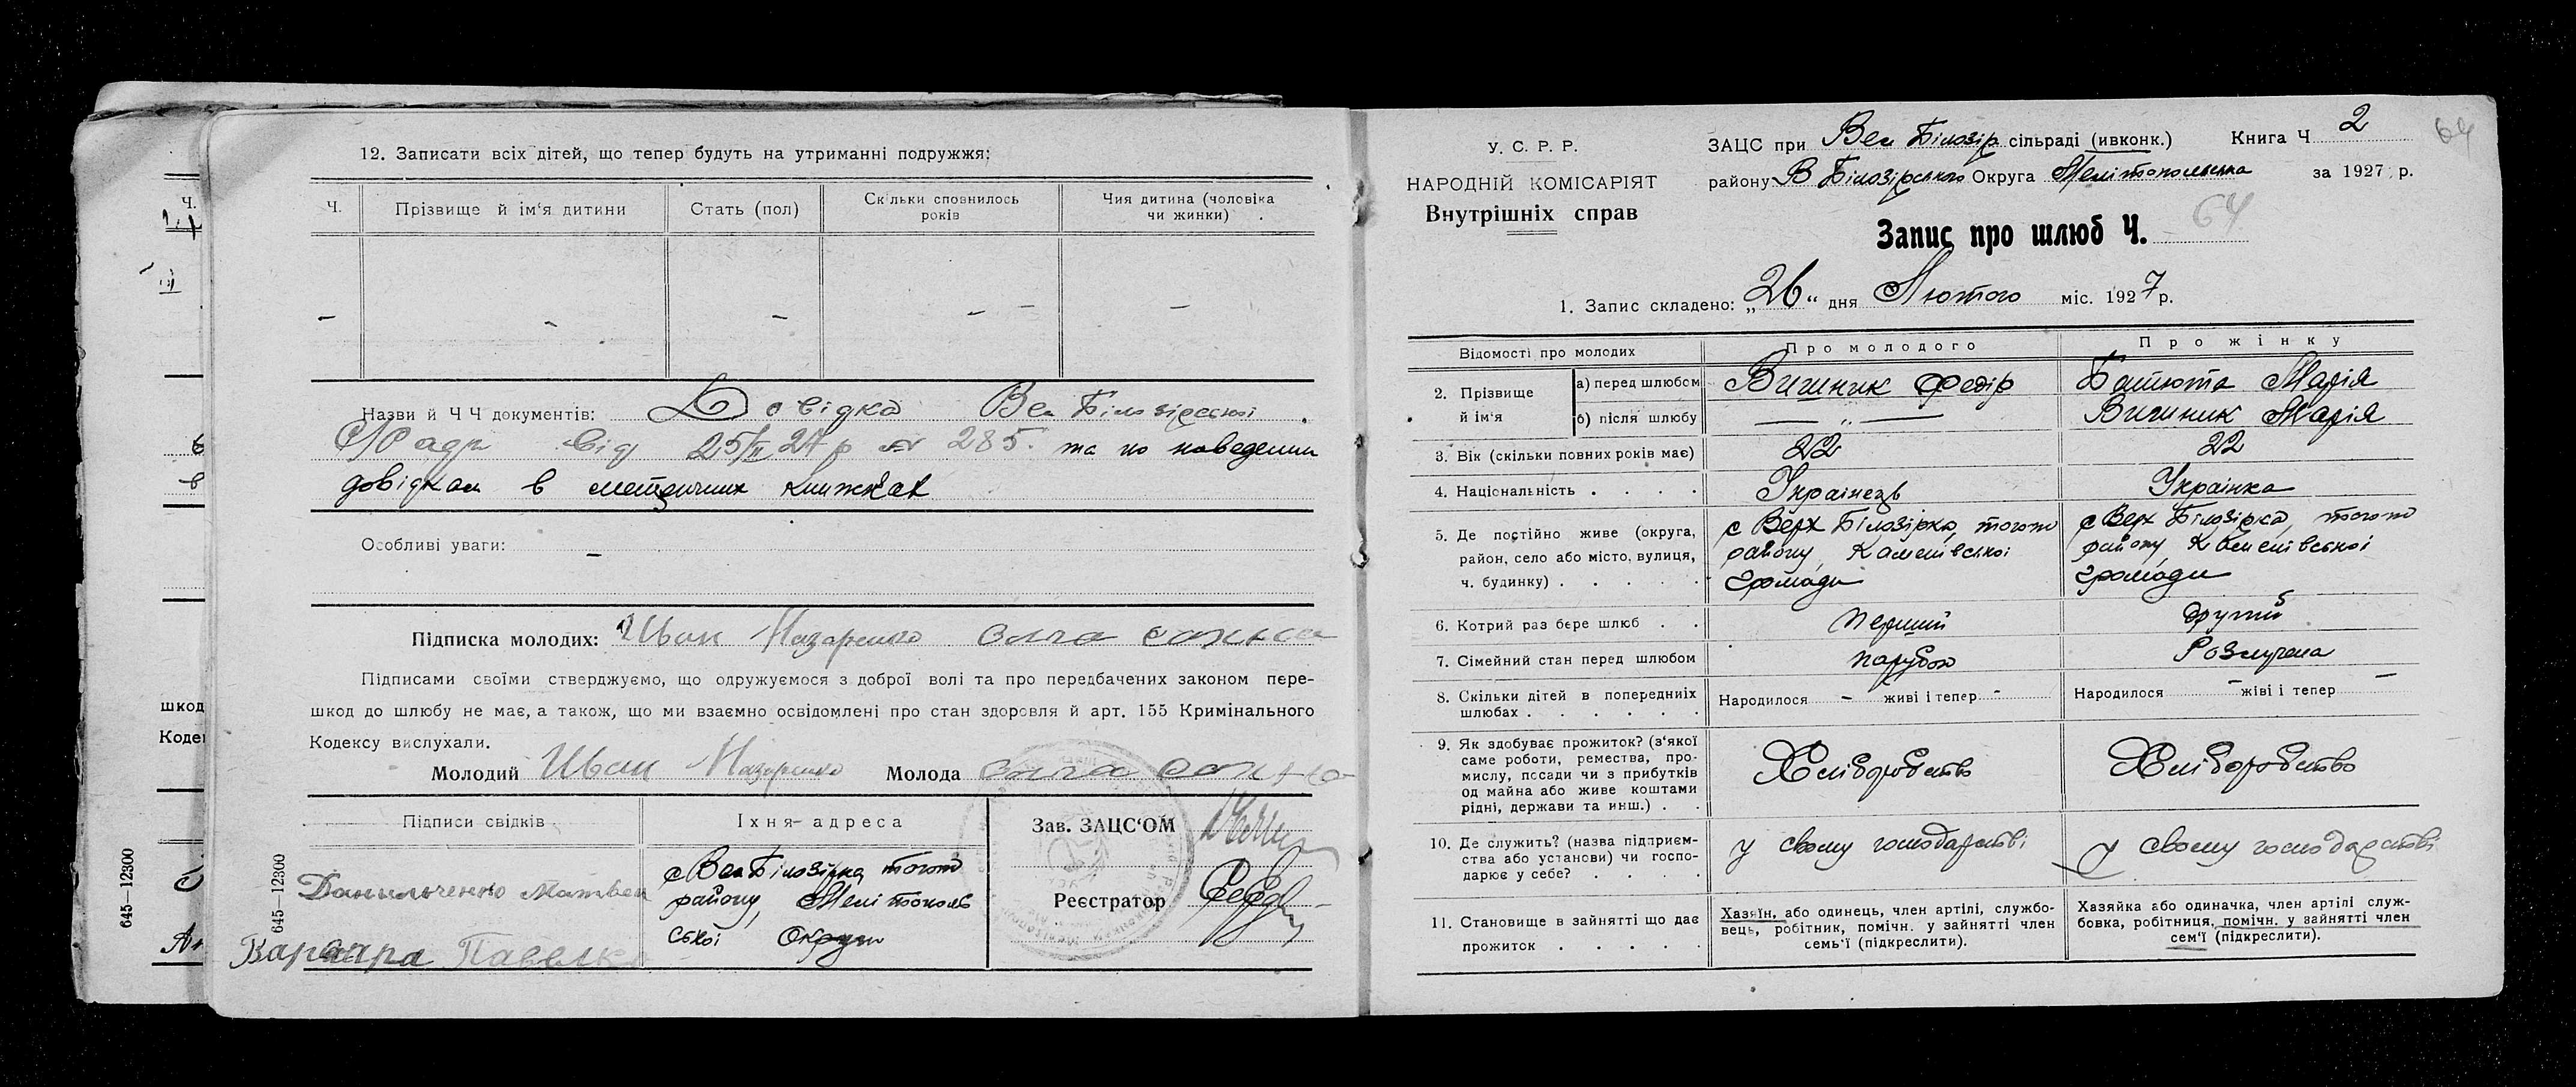 12. Записати всіх дітей, що тепер будуть на утриманні подружжя:
Ч.
Прізвище й ім'я дитини
Стать (пол)
Скільки сповнилось років
Чия дитина (чоловіка чи жинки)
Назви й Ч Ч документів: Довідка Вел Білозірської
Ради від 25/II 27 р № 285. та по наведеним
довідкам в метричних книжках
Особливі уваги: —
Підписка молодих: Иван Назаренко
Підписами своїми стверджуємо, що одружуємося з доброї волі та про передбачених законом пере-
шкод до шлюбу не має, а також, що ми взаємно освідомлені про стан здоровля й арт. 155 Кримінального
Кодексу вислухали.
Молодий Иван Назаренко Молода
Підписи свідків
Їхня адреса
Данильченко Матвей
с Вел Білозірка того ж
району, Мелітополь
ської Округи
Зав. ЗАЦС'ОМ
Реєстратор
645—12300
645—12300
шкод
Коде
У. С. Р. Р.
НАРОДНІЙ КОМІСАРІЯТ
Внутрішніх справ
ЗАЦС при Вел Білозір сільраді (ивконк.) Книга Ч 2
64
району В Білозірського Округа Мелітопольська за 1927 р.
Запис про шлюб Ч. 64
1. Запис складено: „26" дня Лютого міс. 1927 р.
Відомості про молодих
Про молодого
Про жінку
2. Прізвище й ім'я
а) перед шлюбом
Вишник Федір
Батюта Марія
б) після шлюбу
— „ —
Вишник Марія
3. Вік (скільки повних років має)
22
22
4. Національність
Українець
Українка
5. Де постійно живе (округа,
район, село або місто, вулиця,
ч. будинку)
с Верх Білозірка, того ж
району, Каменівської
громади
с Верх Білозірка, того ж
району, Каменівської
громади
6. Котрий раз бере шлюб
перший
другий
7. Сімейний стан перед шлюбом
парубок
Розлучена
8. Скільки дітей в попередніх
шлюбах
Народилося - живі і тепер -
Народилося - живі і тепер -
9. Як здобуває прожиток? (з'якої
саме роботи, ремества, про-
мислу, посади чи з прибутків
од майна або живе коштами
рідні, держави та инш.)
Хліборобство
Хліборобство
10. Де служить? (назва підприєм-
ства або установи) чи госпо-
дарює у себе?
у свому господарстві
у своему господарстві
11. Становище в зайнятті що дає
прожиток
Хазяїн, або одинець, член артілі, службо-
вець, робітник, помічн. у зайнятті член
семь'ї (підкреслити).
Хазяйка або одиначка, член артілі служ-
бовка, робітниця, помічн. у зайнятті член
сем'ї (підкреслити).